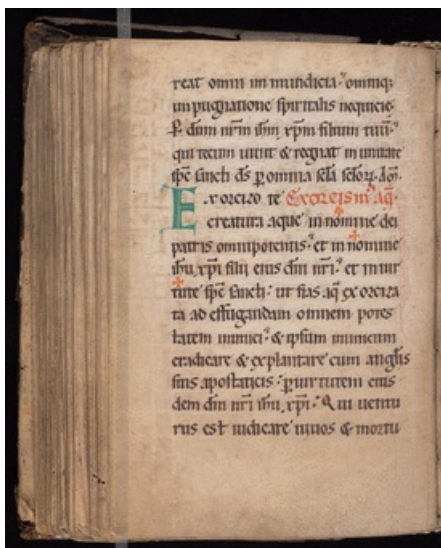 reat omni im mundicia. omniq;
impugnatione spiritalis nequicie.
P dnm nrm ihm xpm filium tuu.
qui tecum uiuit & regnat in unitate
spc sancti ds p omnia scla sclorz. Am.
Exorcizo te Exorcismꝰ aq̄.
creatura aque in nomine dei
patris omnipotentis. et in nomine
ihu xpi filii eius dni nri. et in uir
tute spc sancti. ut fias aq̄ exorciza
ta ad effugandam omnem potes
tatem inimici. & ipsum inimicum
eradicare & explantare cum anglis
suis apostaticis. p uirtutem eius
dem dni nri ihu xpi. Qui uentu
rus est iudicare uiuos & mortu